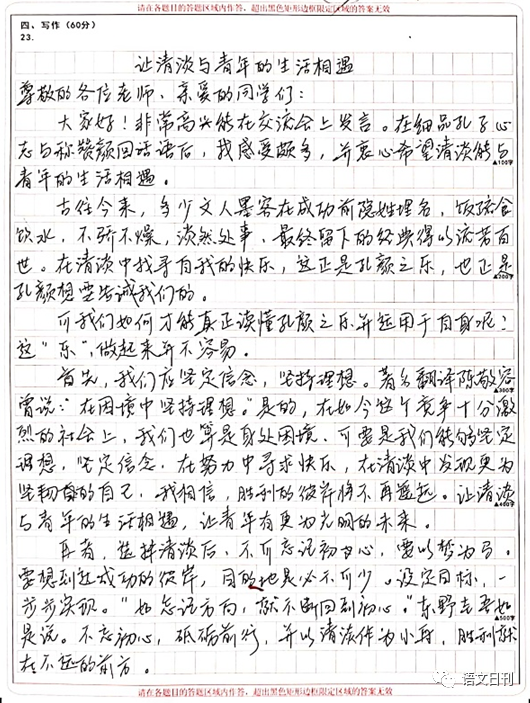 请在各题目的答题区域内作答，超出黑色矩形边框限定区域的答案无效
四、写作（60分）
23.
让清淡与青年的生活相遇
尊敬的各位老师、亲爱的同学们：
大家好！非常高兴能在交流会上发言。在细品孔子心
志与称赞颜回话语后，我感受颇多，并衷心希望清淡能与
青年的生活相遇。
▲100字
古往今来，多少文人墨客在成功前隐姓埋名，饭疏食
饮水，不骄不燥，淡然处事，最终留下的经典得以流芳百
世。在清淡中找寻自我的快乐，这正是孔颜之乐，也正是
▲200字
孔颜想要告诫我们的。
可我们如何才能真正读懂孔颜之乐并运用于自身呢？
这“乐”，做起来并不容易。
首先，我们应坚定信念，坚持理想。著名翻译陈敬容
▲300字
曾说：“在困境中坚持理想。”是的，在如今这个竞争十分激
烈的社会上，我们也算是身处困境，可要是我们能够坚定
理想，坚定信念，在努力中寻求快乐，在清淡中发现更为
坚韧的自己，我相信，胜利的彼岸将不再遥远。让清淡
▲400字
与青年的生活相遇，让青年有更为光明的未来。
再者，选择清淡后，不可忘记初心，要以梦为马。
要想到达成功的彼岸，目的地是必不可少。设定目标，一
步步实现。“如忘记方向，就不断回到初心。”东野圭吾如
▲500字
是说。不忘初心，砥砺前行，并以清淡作为小舟，胜利就
在不远的前方。
语文日刊
请在各题目的答题区域内作答，超出黑色矩形边框限定区域的答案无效